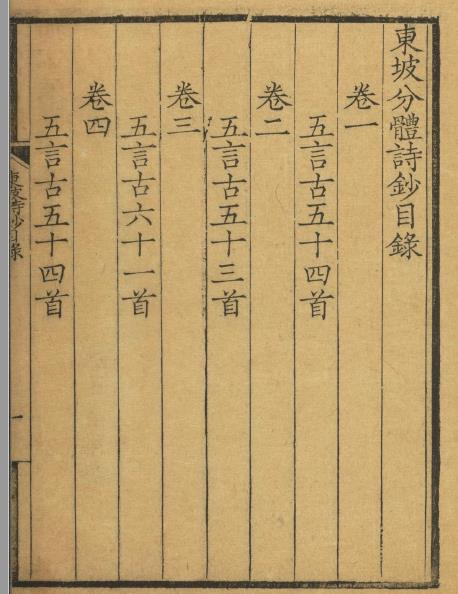 東坡分體詩鈔目錄
卷一
五言古五十四首
卷二
五言古五十三首
卷三
五言古六十一首
卷四
五言古五十四首
東坡詩鈔目錄
一